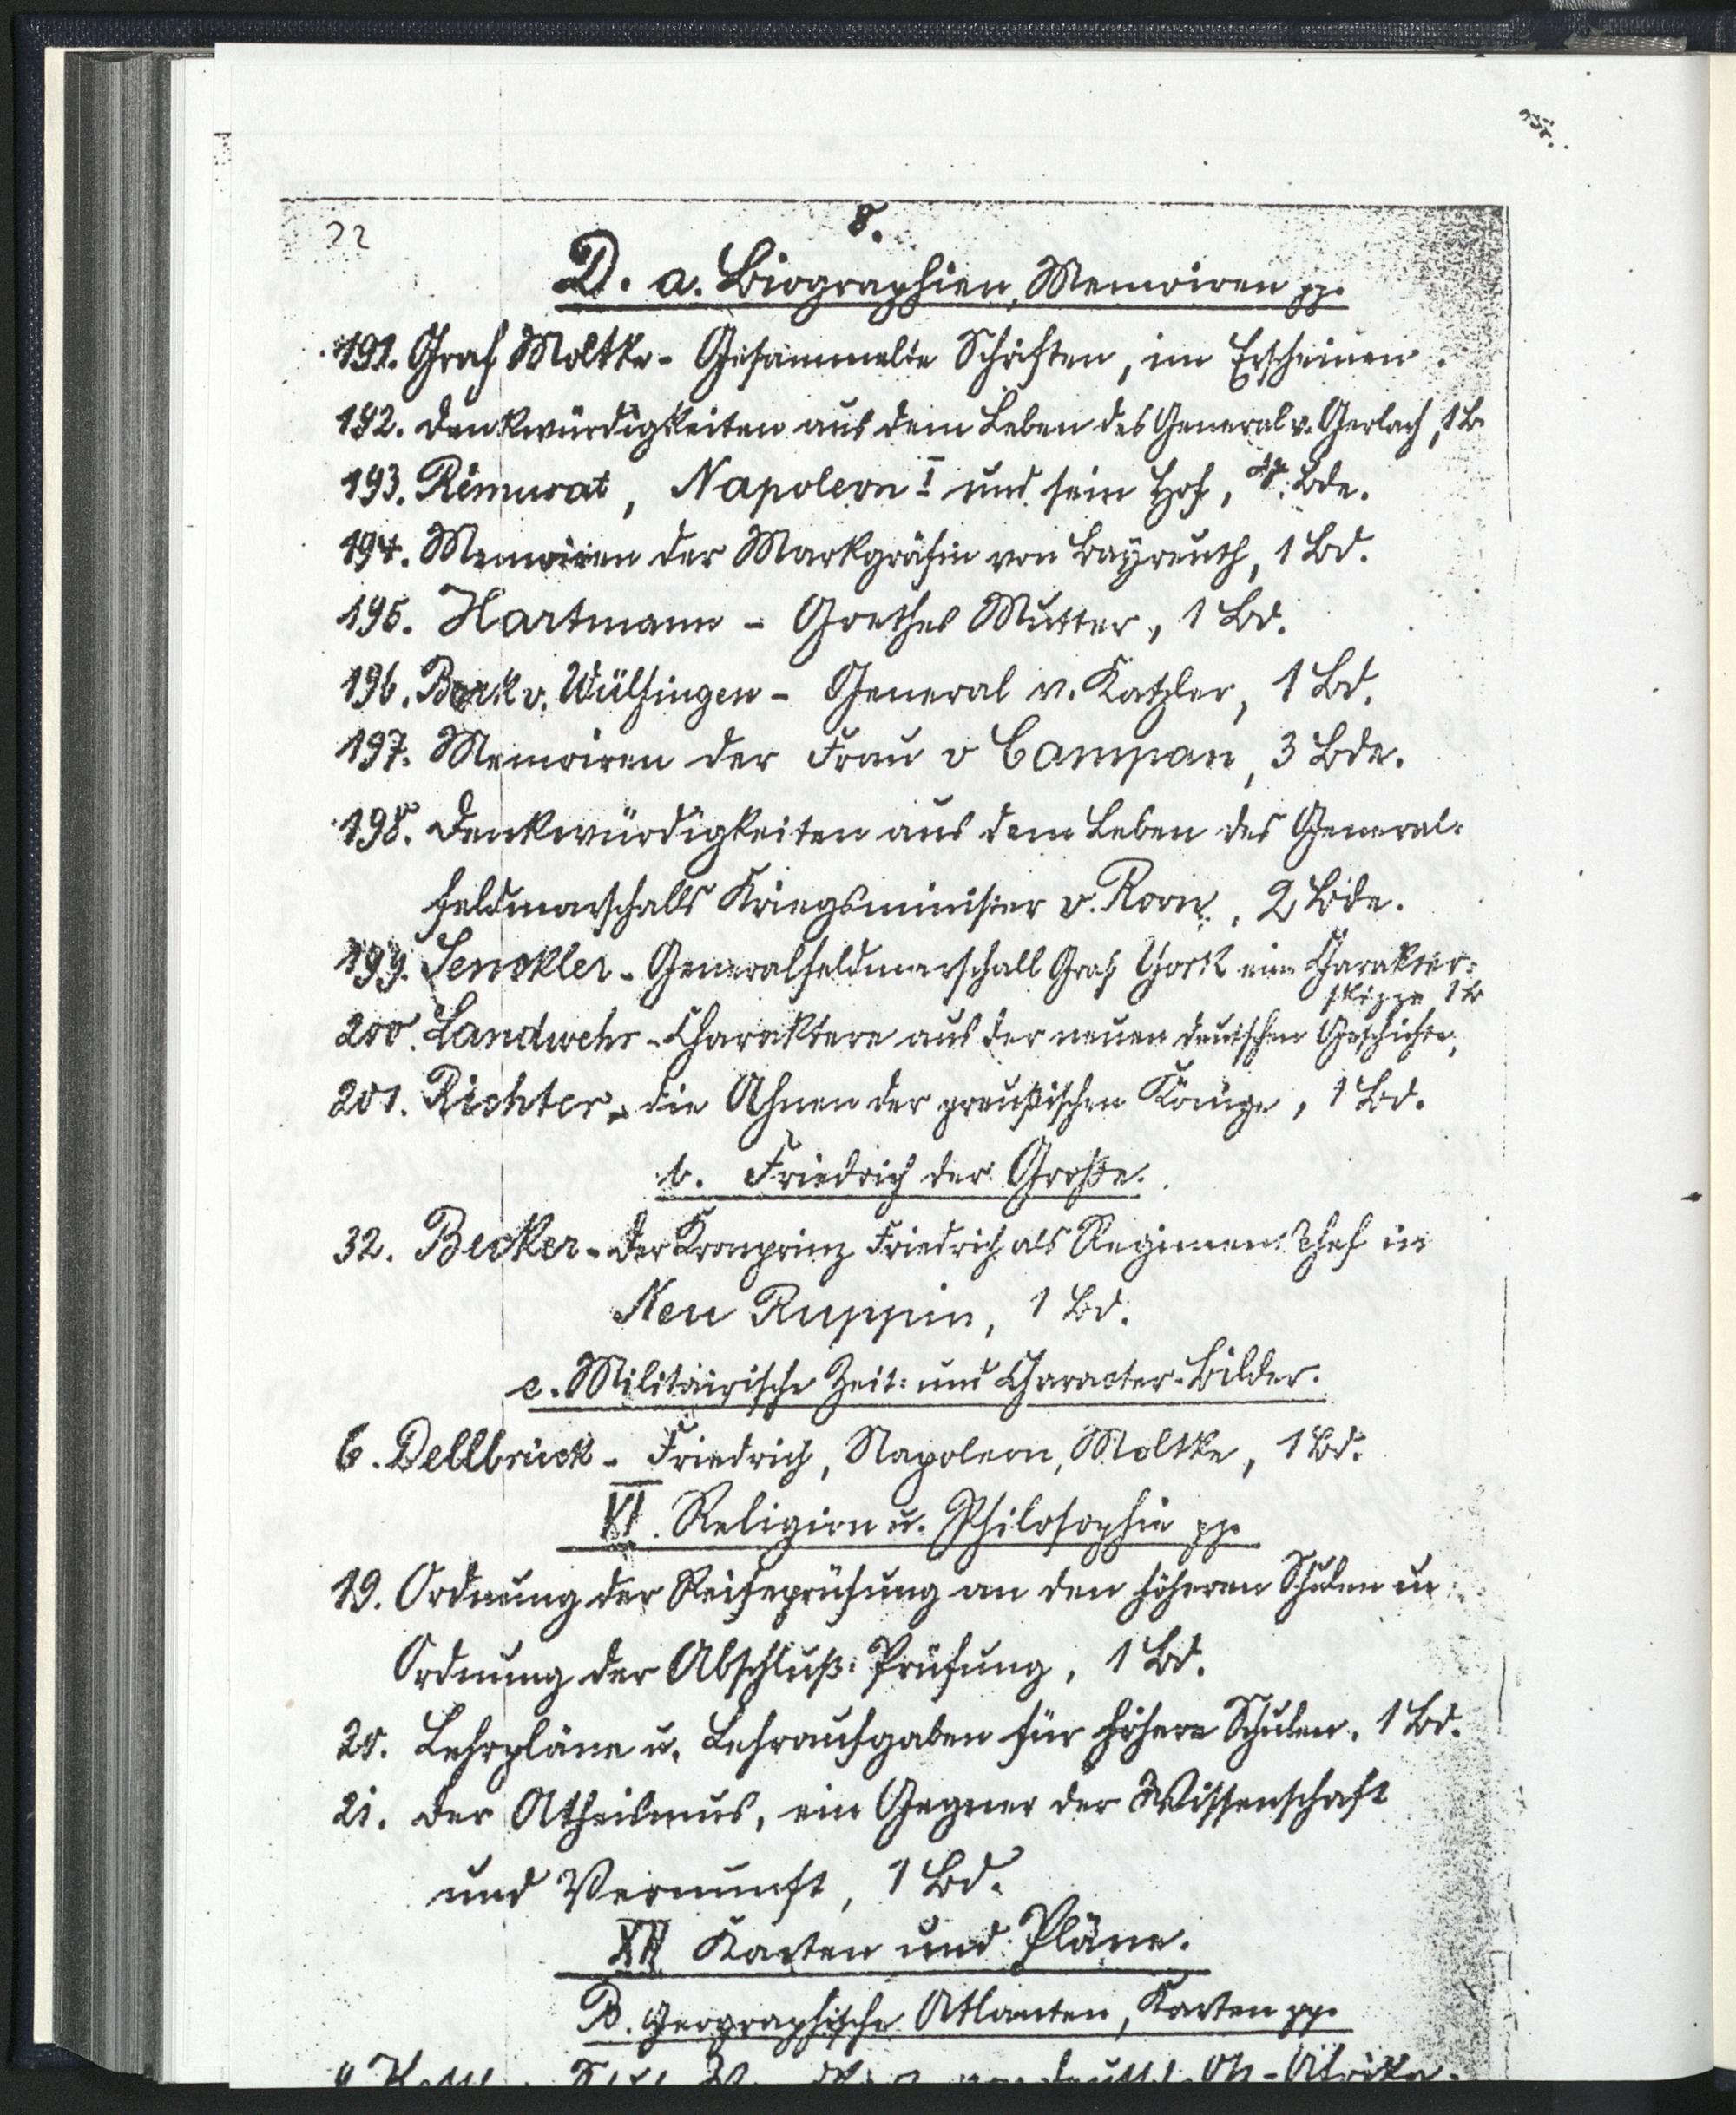 22
8.
D. a. Biographien, Memoiren pp.
191. Graf Moltke - Gesammelte Schriften, im Erscheinen.
192. Denkwürdigkeiten aus dem Leben des General v. Gerlach, 1 B.
193. Rémusat, Napoleon I und sein Hof, Bde.
194. Memoiren der Markgräfin von Bayreuth, 1 Bd.
195. Hartmann - Goethes Mutter, 1 Bd.
196. Bork v. Wülfingen - General v. Katzler, 1 Bd.
197. Memoiren der Frau v Campan, 3 Bde.
198. Denkwürdigkeiten aus dem Leben des General-
feldmarschalls Kriegsminister v. Roon, 2 Bde.
199. Senckler - Generalfeldmarschall Graf York eine Charakter-
skizze 1 B
200. Landwehr - Charaktere aus der neuen deutschen Geschichte,
201. Richter - die Ahnen der preußischen Könige, 1 Bd.
b. Friedrich der Große.
32. Becker - Der Kronprinz Friedrich als Regiments Chef in
Neu Ruppin, 1 Bd.
c. Militairische Zeit- und Character-Bilder.
6. Dellbrück - Friedrich, Napoleon, Moltke, 1 Bd.
XI. Religion u. Philosophie pp.
19. Ordnung der Reifeprüfung an den höheren Schulen u
Ordnung der Abschluß-Prüfung, 1 Bd.
20. Lehrpläne u. Lehraufgaben für höhere Schulen, 1 Bd.
21. Der Atheismus, ein Gegner der Wissenschaft
und Vernunft, 1 Bd.
XII Karten und Pläne.
B. Geographische Atlanten, Karten pp.